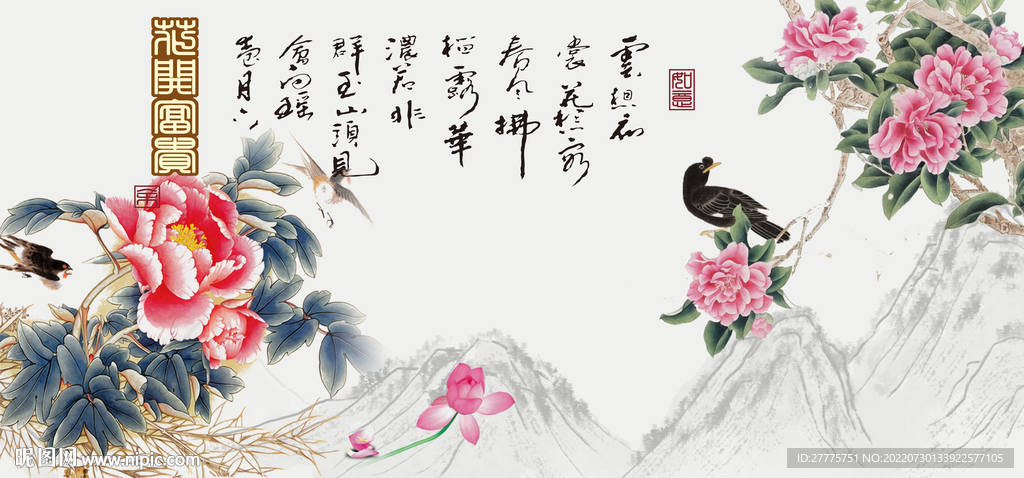 花開富貴
雲想衣
裳花想容
春風拂
檻露華
濃若非
群玉山頭見
會向瑤
臺月下
如意
昵图网 www.nipic.com
ID:27775751 NO:20220730133922577105